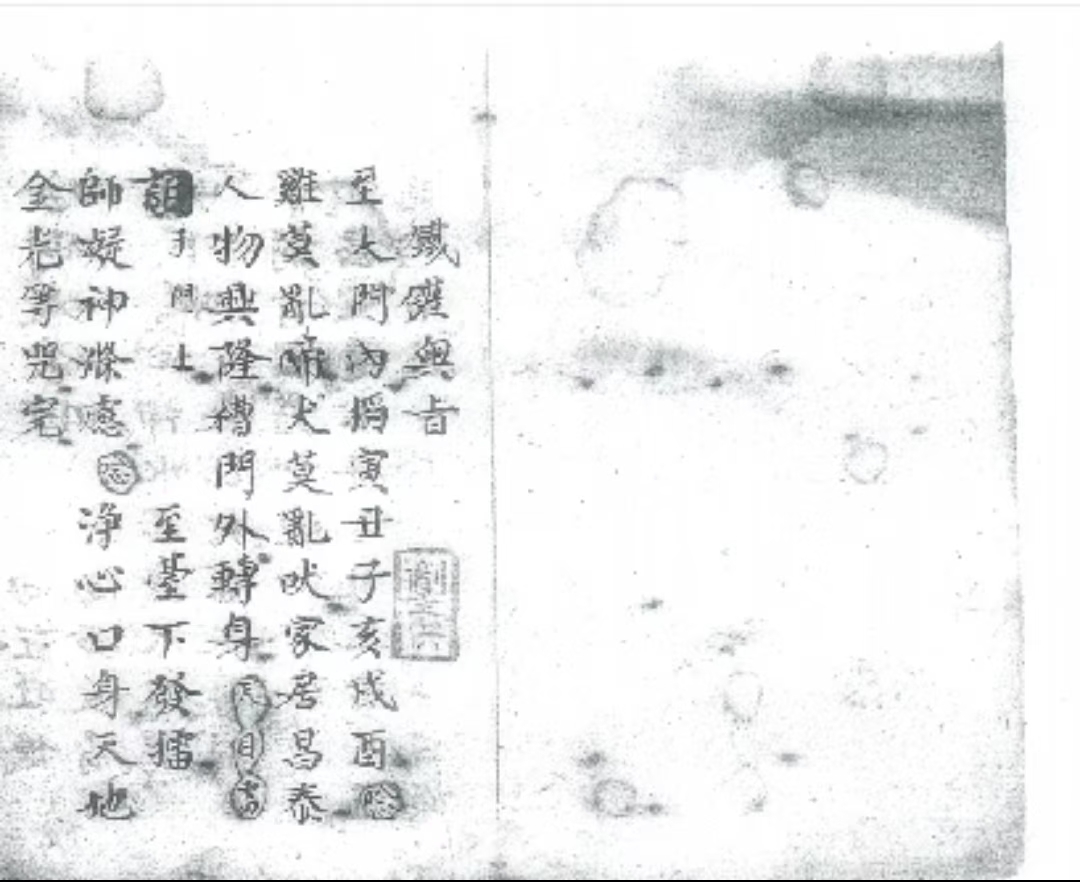 鐵罐與旨
至大門內掐寅丑子亥戌酉唸
雞莫亂啼犬莫亂吠家居昌泰
人物興隆槽門外轉身
于門上 至臺下發擂
師凝神滌慮 淨心口身天地
金光等咒完